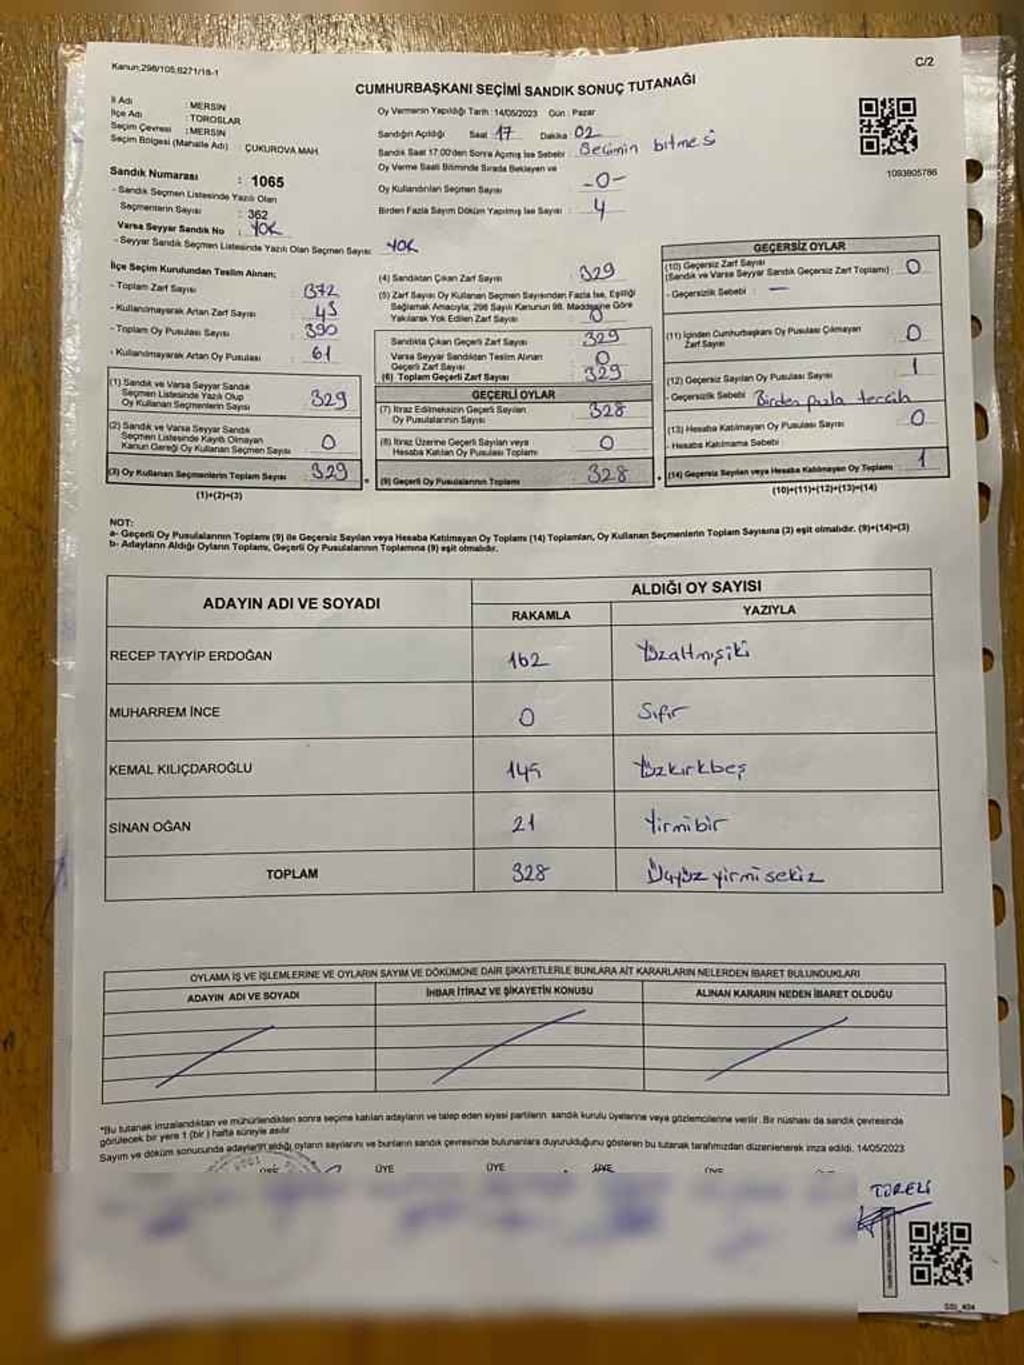 Kanun;298/105,6271/18-1
C/2
CUMHURBAŞKANI SEÇİMİ SANDIK SONUÇ TUTANAĞI
İl Adı : MERSİN
İlçe Adı : TOROSLAR
Seçim Çevresi : MERSİN
Seçim Bölgesi (Mahalle Adı) : ÇUKUROVA MAH.
Oy Vermenin Yapıldığı Tarih : 14/05/2023 Gün : Pazar
Sandığın Açıldığı Saat 17 Dakika 02
Sandık Saat 17:00'den Sonra Açmış İse Sebebi : Seçimin bitmesi
Oy Verme Saati Bitiminde Sırada Bekleyen ve
Oy Kullandırılan Seçmen Sayısı -0-
Birden Fazla Sayım Döküm Yapılmış İse Sayısı : 4
1093805786
Sandık Numarası : 1065
- Sandık Seçmen Listesinde Yazılı Olan
Seçmenlerin Sayısı : 362
Varsa Seyyar Sandık No : YOK
- Seyyar Sandık Seçmen Listesinde Yazılı Olan Seçmen Sayısı: YOK
İlçe Seçim Kurulundan Teslim Alınan;
- Toplam Zarf Sayısı : 372
- Kullanılmayarak Artan Zarf Sayısı : 43
- Toplam Oy Pusulası Sayısı : 390
- Kullanılmayarak Artan Oy Pusulası : 61
(1) Sandık ve Varsa Seyyar Sandık
Seçmen Listesinde Yazılı Olup
Oy Kullanan Seçmenlerin Sayısı 329
(2) Sandık ve Varsa Seyyar Sandık
Seçmen Listesinde Kayıtlı Olmayan
Kanun Gereği Oy Kullanan Seçmen Sayısı 0
(3) Oy Kullanan Seçmenlerin Toplam Sayısı 329
(1)+(2)=(3)
(4) Sandıktan Çıkan Zarf Sayısı : 329
(5) Zarf Sayısı Oy Kullanan Seçmen Sayısından Fazla İse, Eşitliği
Sağlamak Amacıyla; 298 Sayılı Kanunun 98. Maddesine Göre
Yakılarak Yok Edilen Zarf Sayısı : 0
Sandıkta Çıkan Geçerli Zarf Sayısı : 329
Varsa Seyyar Sandıktan Teslim Alınan
Geçerli Zarf Sayısı : 0
(6) Toplam Geçerli Zarf Sayısı : 329
GEÇERLİ OYLAR
(7) İtiraz Edilmeksizin Geçerli Sayılan
Oy Pusulasının Sayısı : 328
(8) İtiraz Üzerine Geçerli Sayılan veya
Hesaba Katılan Oy Pusulası Toplamı : 0
(9) Geçerli Oy Pusulalarının Toplamı : 328
GEÇERSİZ OYLAR
(10) Geçersiz Zarf Sayısı
(Sandık ve Varsa Seyyar Sandık Geçersiz Zarf Toplamı) : 0
- Geçersizlik Sebebi : —
(11) İçinden Cumhurbaşkanı Oy Pusulası Çıkmayan
Zarf Sayısı : 0
(12) Geçersiz Sayılan Oy Pusulası Sayısı : 1
- Geçersizlik Sebebi : Birden fazla tercih
(13) Hesaba Katılmayan Oy Pusulası Sayısı : 0
- Hesaba Katılmama Sebebi
(14) Geçersiz Sayılan veya Hesaba Katılmayan Oy Toplamı : 1
(10)+(11)+(12)+(13)=(14)
NOT:
a- Geçerli Oy Pusulalarının Toplamı (9) ile Geçersiz Sayılan veya Hesaba Katılmayan Oy Toplamı (14) Toplamları, Oy Kullanan Seçmenlerin Toplam Sayısına (3) eşit olmalıdır. (9)+(14)=(3)
b- Adayların Aldığı Oyların Toplamı, Geçerli Oy Pusulalarının Toplamına (9) eşit olmalıdır.
ADAYIN ADI VE SOYADI
ALDIĞI OY SAYISI
RAKAMLA YAZIYLA
RECEP TAYYİP ERDOĞAN 162 Yüzaltmışiki
MUHARREM İNCE 0 Sıfır
KEMAL KILIÇDAROĞLU 145 Yüzkırkbeş
SİNAN OĞAN 21 Yirmibir
TOPLAM 328 Üçyüzyirmisekiz
OYLAMA İŞ VE İŞLEMLERİNE VE OYLARIN SAYIM VE DÖKÜMÜNE DAİR ŞİKAYETLERLE BUNLARA AİT KARARLARIN NELERDEN İBARET BULUNDUKLARI
ADAYIN ADI VE SOYADI İHBAR İTİRAZ VE ŞİKAYETİN KONUSU ALINAN KARARIN NEDEN İBARET OLDUĞU
*Bu tutanak imzalandıktan ve mühürlendikten sonra seçime katılan adayların ve talep eden siyasi partilerin sandık kurulu üyelerine veya gözlemcilerine verilir. Bir nüshası da sandık çevresinde
görülecek bir yere 1 (bir) hafta süreyle asılır.
Sayım ve döküm sonucunda adayların aldığı oyların sayılarını ve bunların sandık çevresinde bulunanlara duyurulduğunu gösteren bu tutanak tarafımızdan düzenlenerek imza edildi. 14/05/2023
ÜYE ÜYE ÜYE ÜYE
TÜRELİ